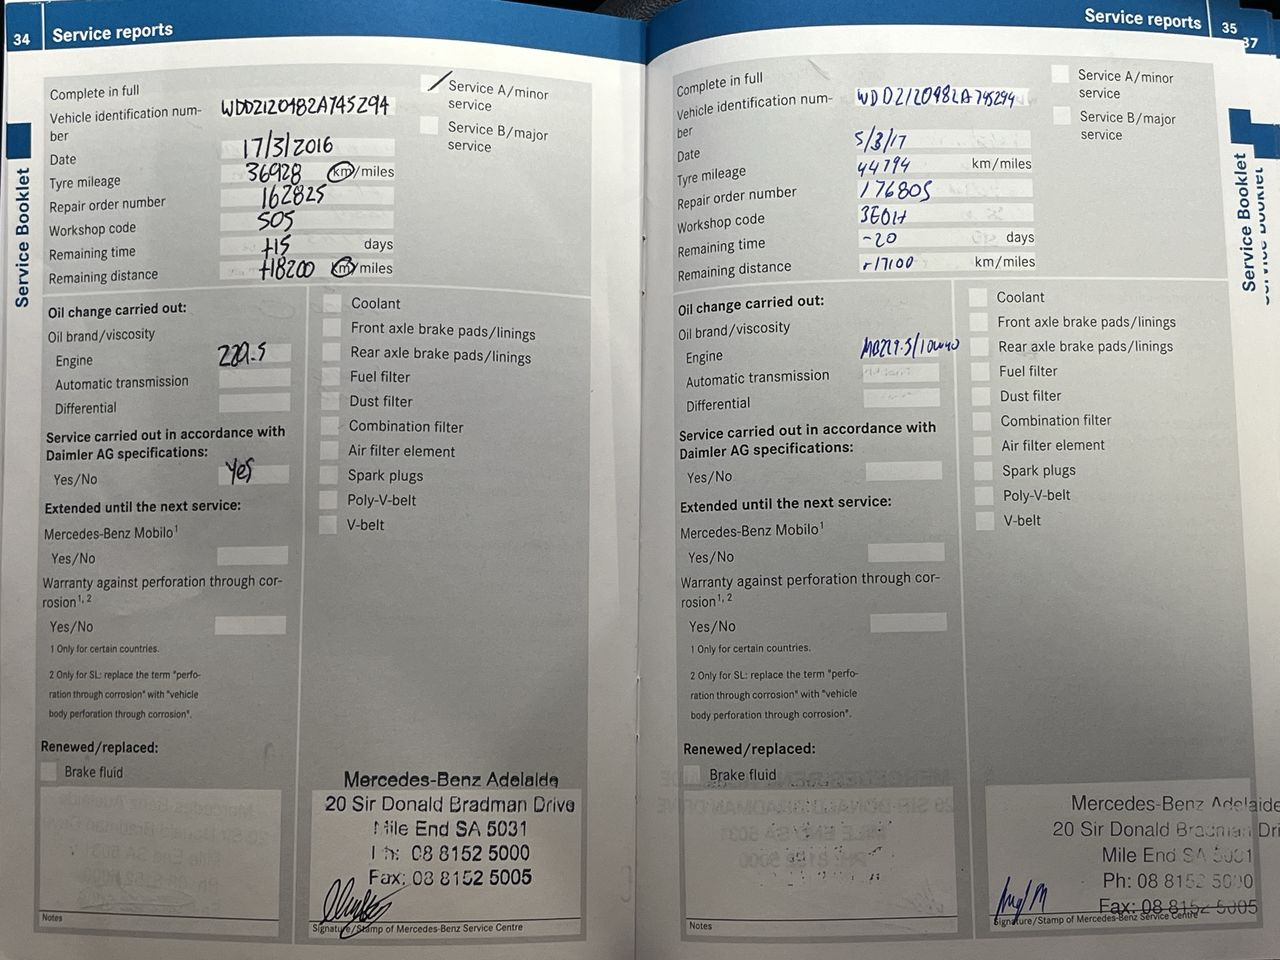 34 Service reports
Complete in full
Vehicle identification num-
ber
WDD2120482A745294
Service A/minor
service
Service B/major
service
Date 17/3/2016
Tyre mileage 36928 km/miles
Repair order number 162825
Workshop code 505
Remaining time +15 days
Remaining distance +18200 km/miles
Oil change carried out:
Oil brand/viscosity
Engine 229.5
Automatic transmission
Differential
Service carried out in accordance with
Daimler AG specifications:
Yes/No Yes
Extended until the next service:
Mercedes-Benz Mobilo1
Yes/No
Warranty against perforation through cor-
rosion1, 2
Yes/No
1 Only for certain countries.
2 Only for SL: replace the term "perfo-
ration through corrosion" with "vehicle
body perforation through corrosion".
Renewed/replaced:
Brake fluid
Notes
Coolant
Front axle brake pads/linings
Rear axle brake pads/linings
Fuel filter
Dust filter
Combination filter
Air filter element
Spark plugs
Poly-V-belt
V-belt
Mercedes-Benz Adelaide
20 Sir Donald Bradman Drive
Mile End SA 5031
Ph: 08 8152 5000
Fax: 08 8152 5005
Signature/Stamp of Mercedes-Benz Service Centre
Service Booklet
Service reports 35
37
Complete in full
Vehicle identification num-
ber
WDD2120482A745294
Service A/minor
service
Service B/major
service
Date 5/3/17
Tyre mileage 44794 km/miles
Repair order number 176805
Workshop code 3E01t
Remaining time -20 days
Remaining distance +17100 km/miles
Oil change carried out:
Oil brand/viscosity
Engine MB229.5/10W40
Automatic transmission
Differential
Service carried out in accordance with
Daimler AG specifications:
Yes/No
Extended until the next service:
Mercedes-Benz Mobilo1
Yes/No
Warranty against perforation through cor-
rosion1, 2
Yes/No
1 Only for certain countries.
2 Only for SL: replace the term "perfo-
ration through corrosion" with "vehicle
body perforation through corrosion".
Renewed/replaced:
Brake fluid
Notes
Coolant
Front axle brake pads/linings
Rear axle brake pads/linings
Fuel filter
Dust filter
Combination filter
Air filter element
Spark plugs
Poly-V-belt
V-belt
Mercedes-Benz Adelaide
20 Sir Donald Bradman Dri
Mile End SA 5031
Ph: 08 8152 5000
Fax: 08 8152 5005
Signature/Stamp of Mercedes-Benz Service Centre
Service Booklet